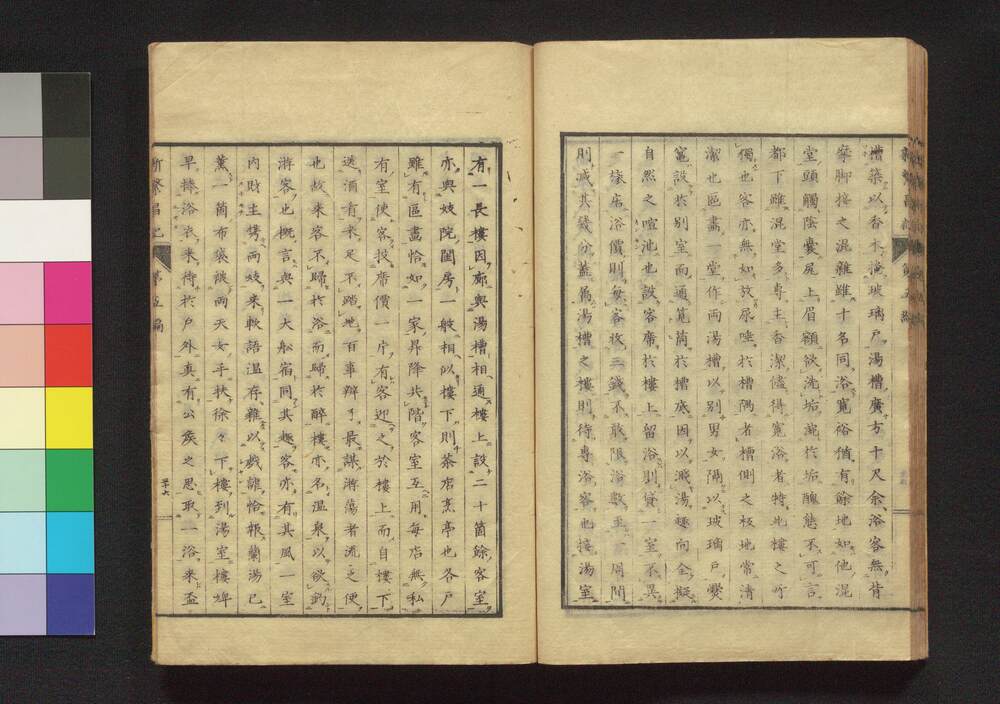 槽築以香木掩玻璃戸湯槽廣方十尺余浴客無背
摩脚接之混雜雖十名同浴寬裕猶有餘地如他混
堂頭觸陰嚢尻上眉額欲洗垢溷於垢醜態不可言
都下雖混堂多專主香潔儘得寬浴者特此樓之所
獨也客亦無如放尿唾於槽隅者槽側之板地常清
潔也區畫一堂作兩湯槽以別男女隔以玻璃戸爨
竈設於別室而通筧筒於槽底因以濺湯極向全擬
自然之喧池也設客席於樓上留浴則貸一室不異
一旅店浴價則每客收三錢不敢限浴數至一周間
則減其幾分蓋屬湯槽之樓則待專浴客也接湯室
有一長樓因廊與湯槽相通樓上設二十箇餘客室
亦與妓院閨房一般相似樓下則茶店烹亭也各戸
雖有區畫恰如一家昇降共階客室互用每店無私
有室使客投席價一片有客迎之於樓上而自樓下
送酒肴来足不踏地百事辨了最謀游蕩者流之便
也故来客不歸於浴而歸於醉樓亦名溫泉以欲釣
游客也概言與一大船宿同其趣客亦有其風一室
内財主携兩妓来軟語溫存雜以戲謔恰報蘭湯已
薫一箇布袋被兩天女手扶徐々下樓到湯室樓婢
早捧浴衣来待於戸外真有公侯之思取一浴来盃
新繁昌記 第五編